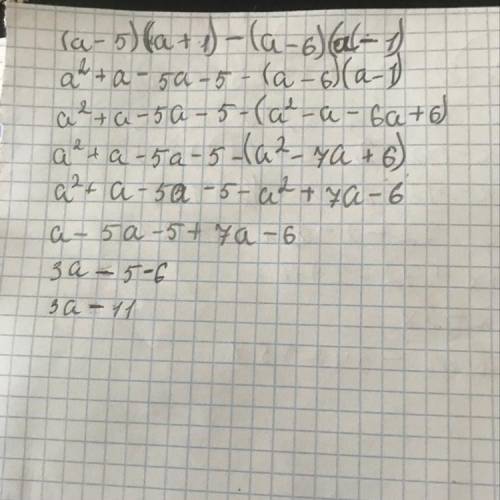 (a-5)(a+1)-(a-6)(a-1)
a²+a-5a-5-(a-6)(a-1)
a²+a-5a-5-(a²-a-6a+6)
a²+a-5a-5-(a²-7a+6)
a²+a-5a-5-a²+7a-6
a-5a-5+7a-6
3a-5-6
3a-11